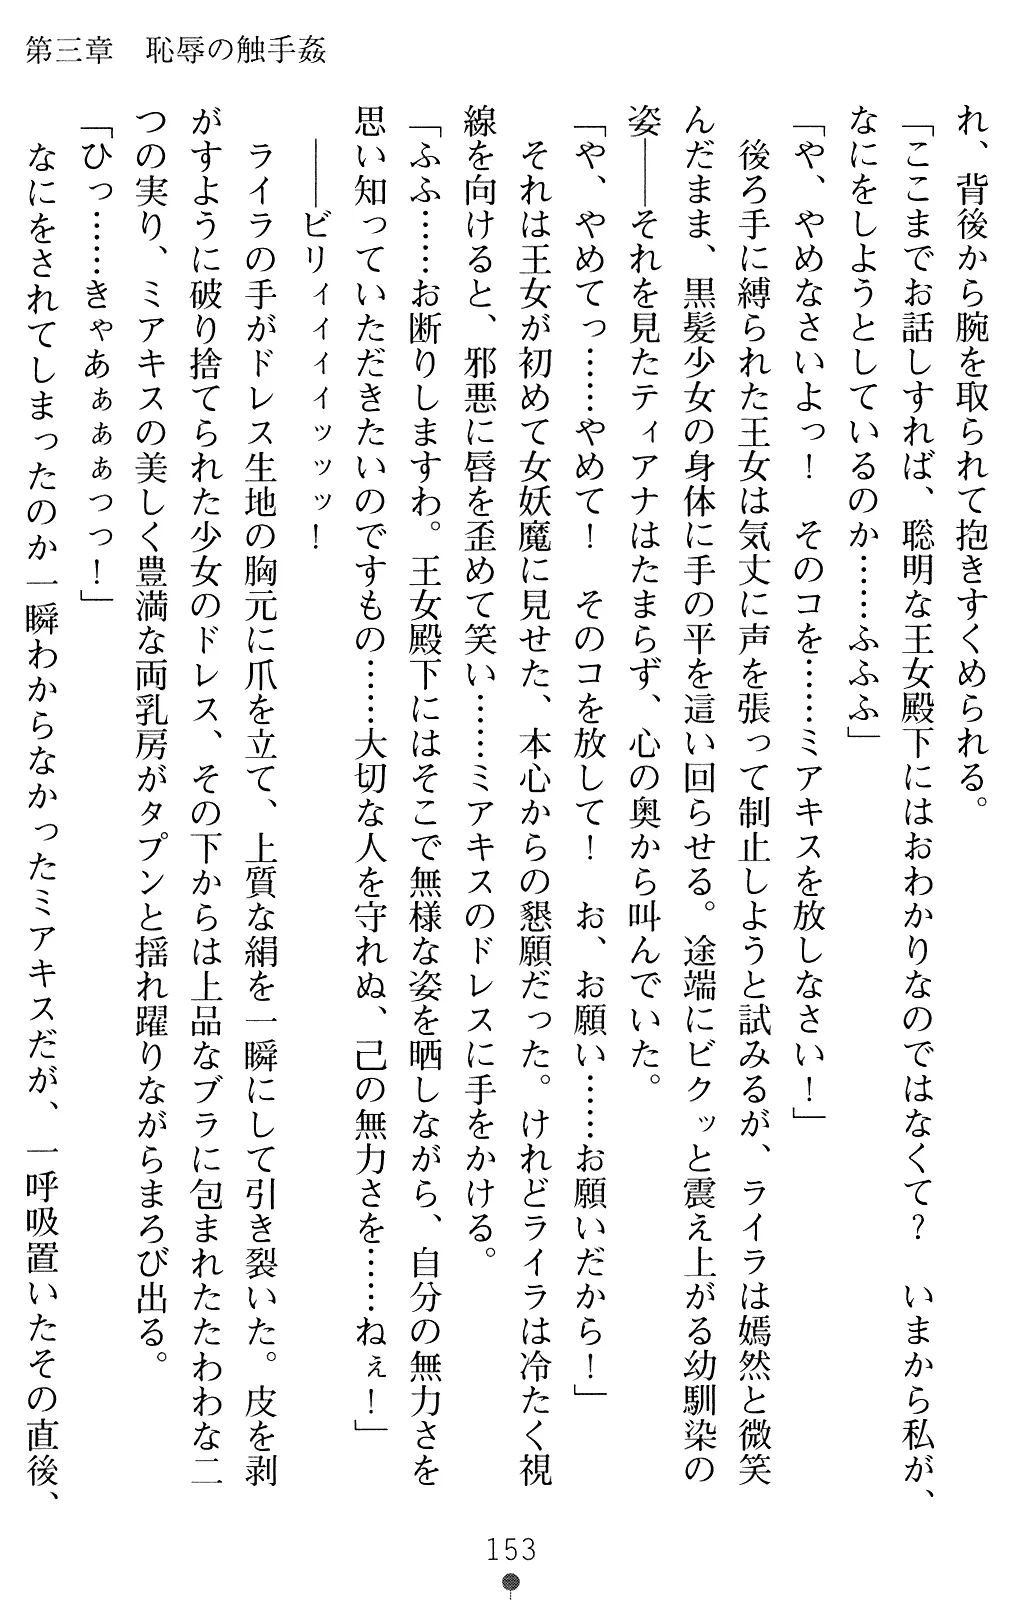 第三章　恥辱の触手姦
れ、背後から腕を取られて抱きすくめられる。
「ここまでお話しすれば、聡明な王女殿下にはおわかりなのではなくて？　いまから私が、
なにをしようとしているのか……ふふふ」
「や、やめなさいよっ！　そのコを……ミアキスを放しなさい！」
後ろ手に縛られた王女は気丈に声を張って制止しようと試みるが、ライラは嫣然と微笑
んだまま、黒髪少女の身体に手の平を這い回らせる。途端にビクッと震え上がる幼馴染の
姿――それを見たティアナはたまらず、心の奥から叫んでいた。
「や、やめてっ……やめて！　そのコを放して！　お、お願い……お願いだから！」
それは王女が初めて女妖魔に見せた、本心からの懇願だった。けれどライラは冷たく視
線を向けると、邪悪に唇を歪めて笑い……ミアキスのドレスに手をかける。
「ふふ……お断りしますわ。王女殿下にはそこで無様な姿を晒しながら、自分の無力さを
思い知っていただきたいのですもの……大切な人を守れぬ、己の無力さを……ねぇ！」
――ビリィィィィッッッ！
ライラの手がドレス生地の胸元に爪を立て、上質な絹を一瞬にして引き裂いた。皮を剥
がすように破り捨てられた少女のドレス、その下からは上品なブラに包まれたたわわな二
つの実り、ミアキスの美しく豊満な両乳房がタプンと揺れ躍りながらまろび出る。
「ひっ……きゃあぁぁぁっっ！」
なにをされてしまったのか一瞬わからなかったミアキスだが、一呼吸置いたその直後、
153